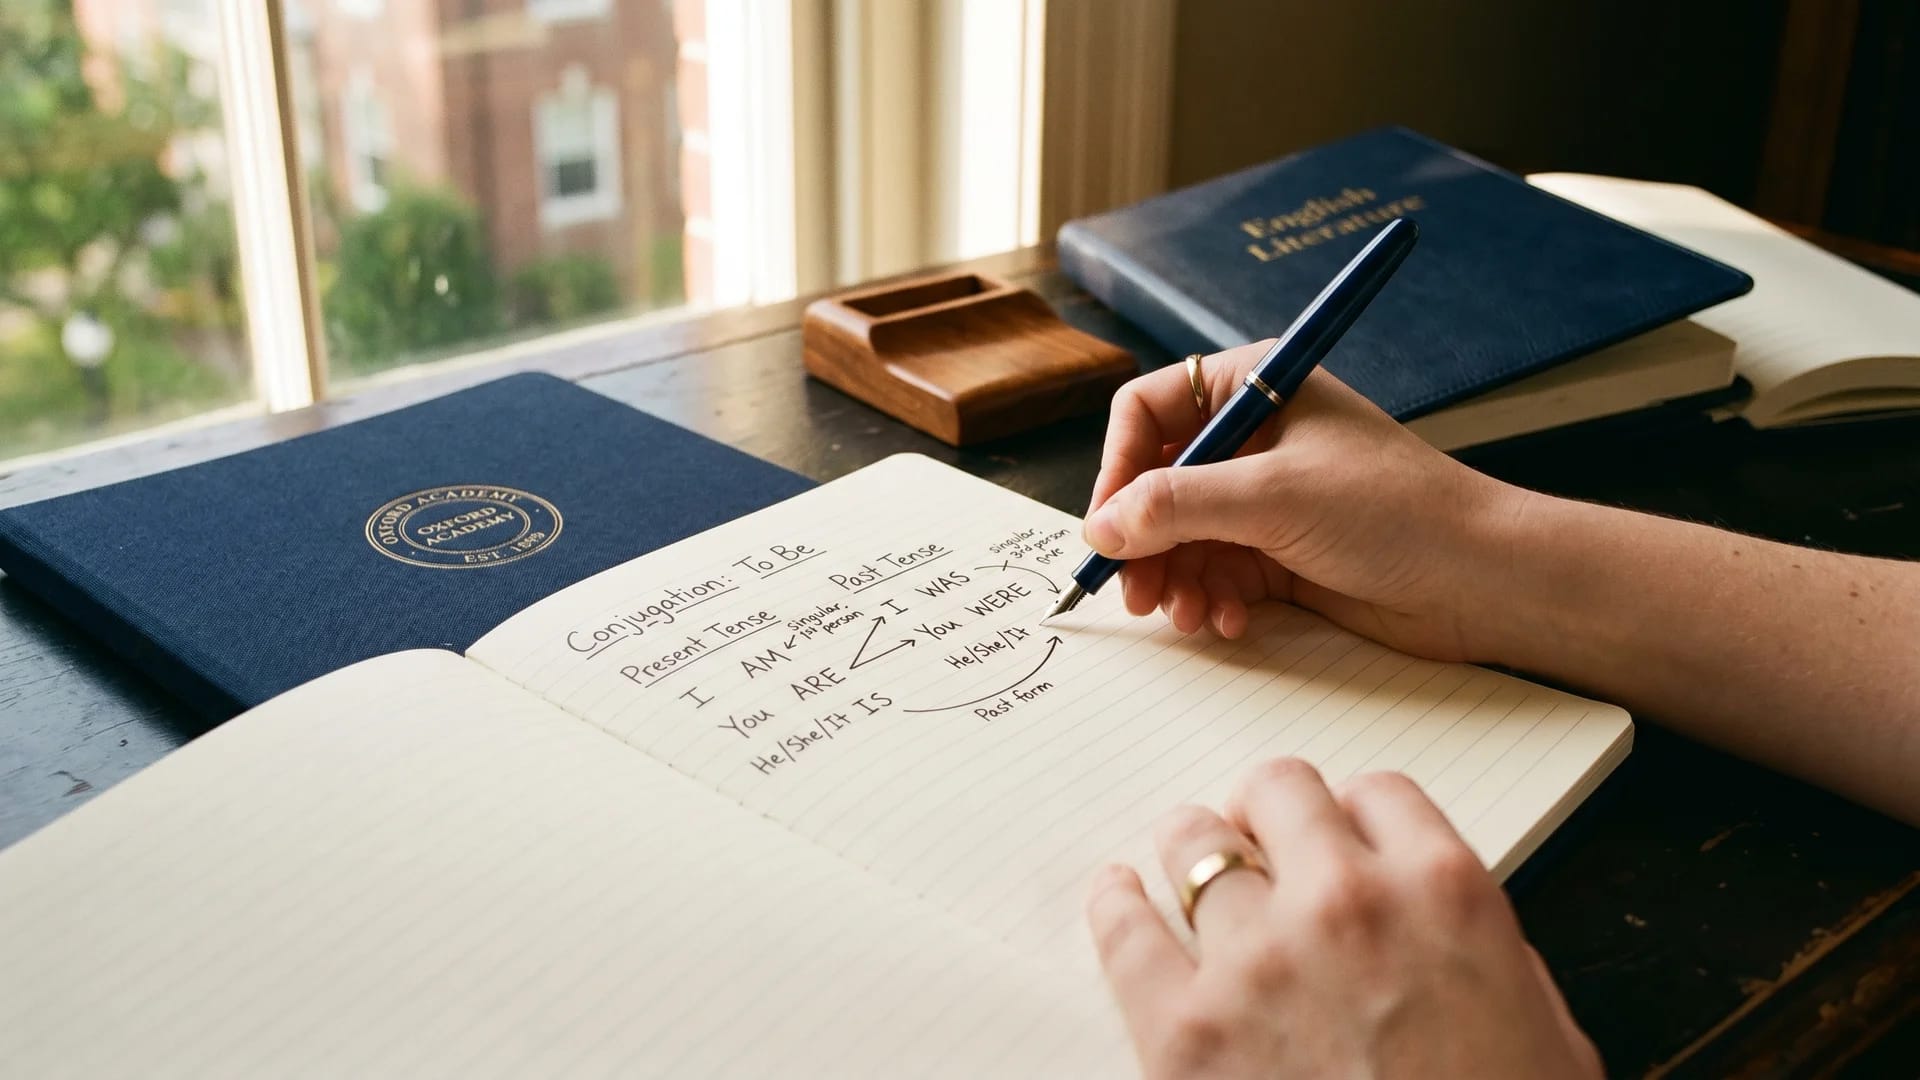 English
Literature
OXFORD ACADEMY
OXFORD
ACADEMY
EST. 1889
Conjugation: To Be
Present Tense
I AM
singular,
1st person
You ARE
He/She/It IS
Past Tense
I WAS
singular,
3rd person
You WERE
He/She/It
Past form